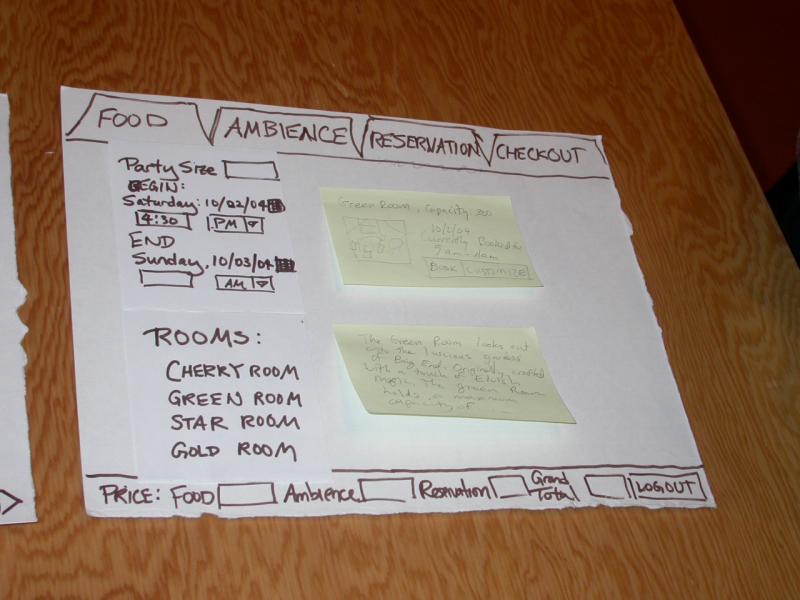 FOOD
AMBIENCE
RESERVATION
CHECKOUT
Party Size
BEGIN:
Saturday: 10/02/04
4:30 PM
END
Sunday, 10/03/04
AM
ROOMS:
CHERRY ROOM
GREEN ROOM
STAR ROOM
GOLD ROOM
Green Room, Capacity: 300
10/2/04
currently Booked for
9am-11am
BOOK CUSTOMIZE
The Green Room looks out
onto the luscious gardens
of Bag End. Originally crafted
with a touch of Elvish
magic, the green Room
holds a maximum
capacity of ...
PRICE: FOOD Ambience Reservation Grand Total LOGOUT